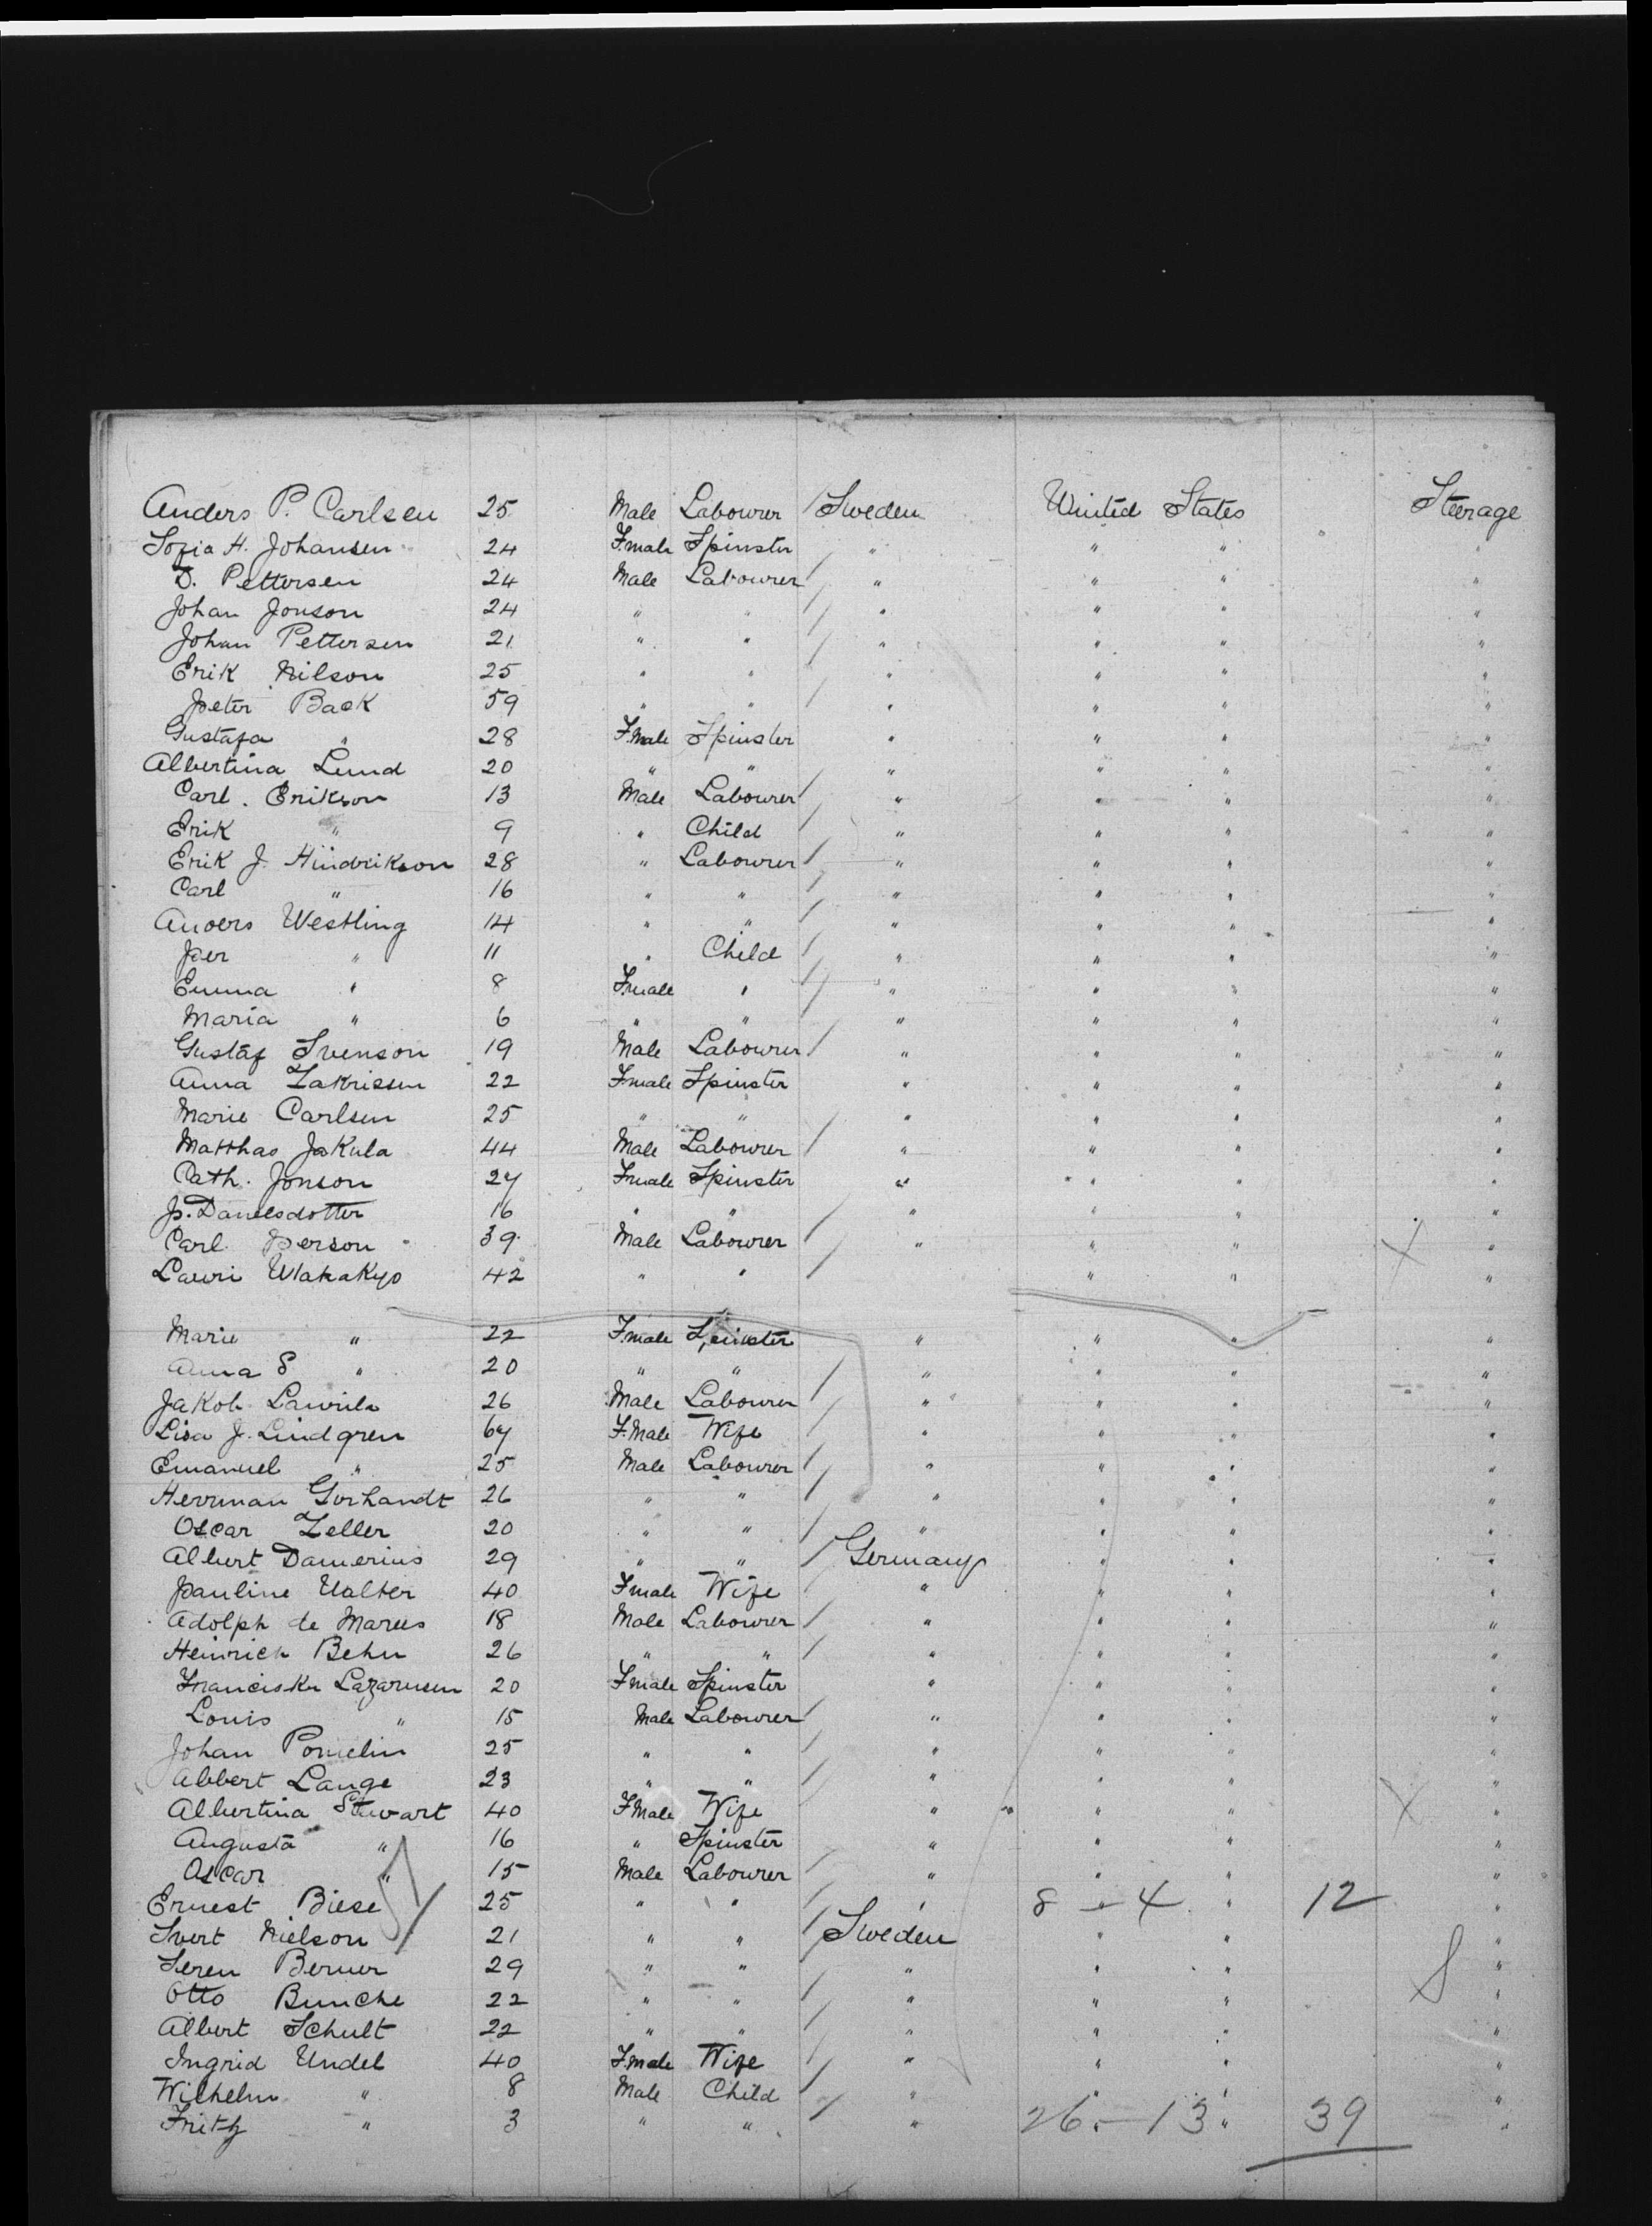 Anders P. Carlsen 25 Male Labourer / Sweden United States Steerage
Sofia H. Johansen 24 F.male Spinster " " " "
D. Pettersen 24 Male Labourer / " " " "
Johan Jonson 24 " " / " " " "
Johan Pettersen 21 " " / " " " "
Erik Nilson 25 " " / " " " "
Peter Back 59 " " / " " " "
Gustafa " 28 F.male Spinster " " " "
Albertina Lund 20 " " " " " "
Carl. Erikson 13 Male Labourer / " " " "
Erik " 9 " Child / " " " "
Erik J. Hindrikson 28 " Labourer / " " " "
Carl " 16 " " / " " " "
Anders Westling 14 " " / " " " "
Per " 11 " Child / " " " "
Emma " 8 F.male " / " " " "
Maria " 6 " " " " " "
Gustaf Svenson 19 Male Labourer / " " " "
Anna Zakrissen 22 F.male Spinster " " " "
Marie Carlsen 25 " " " " " "
Matthas Jakula 44 Male Labourer / " " " "
Cath. Jonson 27 F.male Spinster " " " "
P. Danelsdotter 16 " " " " " "
Carl Person 39 Male Labourer / " " " X "
Lauri 42 " " / " " "
Marie " 22 F.male Spinster " " " "
Anna S " 20 " " " " " "
Jakob 26 Male Labourer / " " " "
Lisa J. Lindgren 67 F.Male Wife " " " "
Emanuel " 25 Male Labourer / " " " "
Herrman Gerhandt 26 " " / " " " "
Oscar Zeller 20 " " / " " " "
Albert Damerius 29 " " / Germany " " "
Pauline Ualter 40 F.male Wife " " " "
Adolph de Marees 18 Male Labourer / " " " "
Heinrich Behn 26 " " / " " " "
Franciska Lazarusen 20 F.male Spinster " " " "
Louis " 15 Male Labourer / " " " "
Johan Pomelin 25 " " / " " " "
Albert Lange 23 " " / " " " X "
Albertina Stuvart 40 F.Male Wife " " " "
Augusta " 16 " Spinster " " " "
Oscar " 15 Male Labourer / " " " "
Ernest Biese 25 " " / " 8 - 4 " 12 "
Ivert Nielson 21 " " / Sweden " " "
Seren Berner 29 " " " " " "
Otto Bunche 22 " " / " " " "
Albert Schult 22 " " / " " " "
Ingrid Undel 40 F.male Wife " " " "
Wilhelm " 8 Male Child / " " " "
Fritz " 3 " " / " 26 - 13 " 39 "